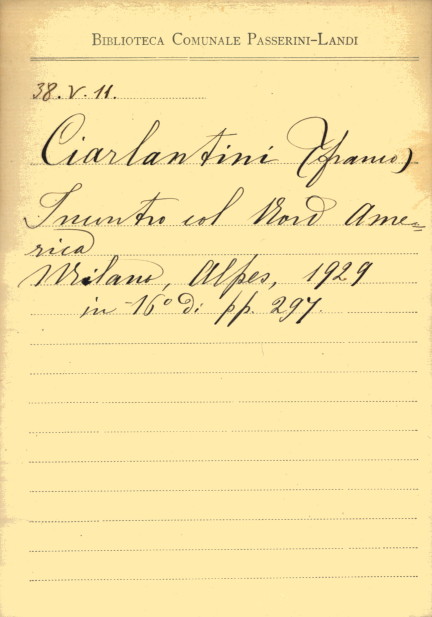 BIBLIOTECA COMUNALE PASSERINI-LANDI
38.V.11.
Ciarlantini (Franco)
Incontro col Nord Ame=
rica
Milano, Alpes, 1929
in-16° di pp. 297.